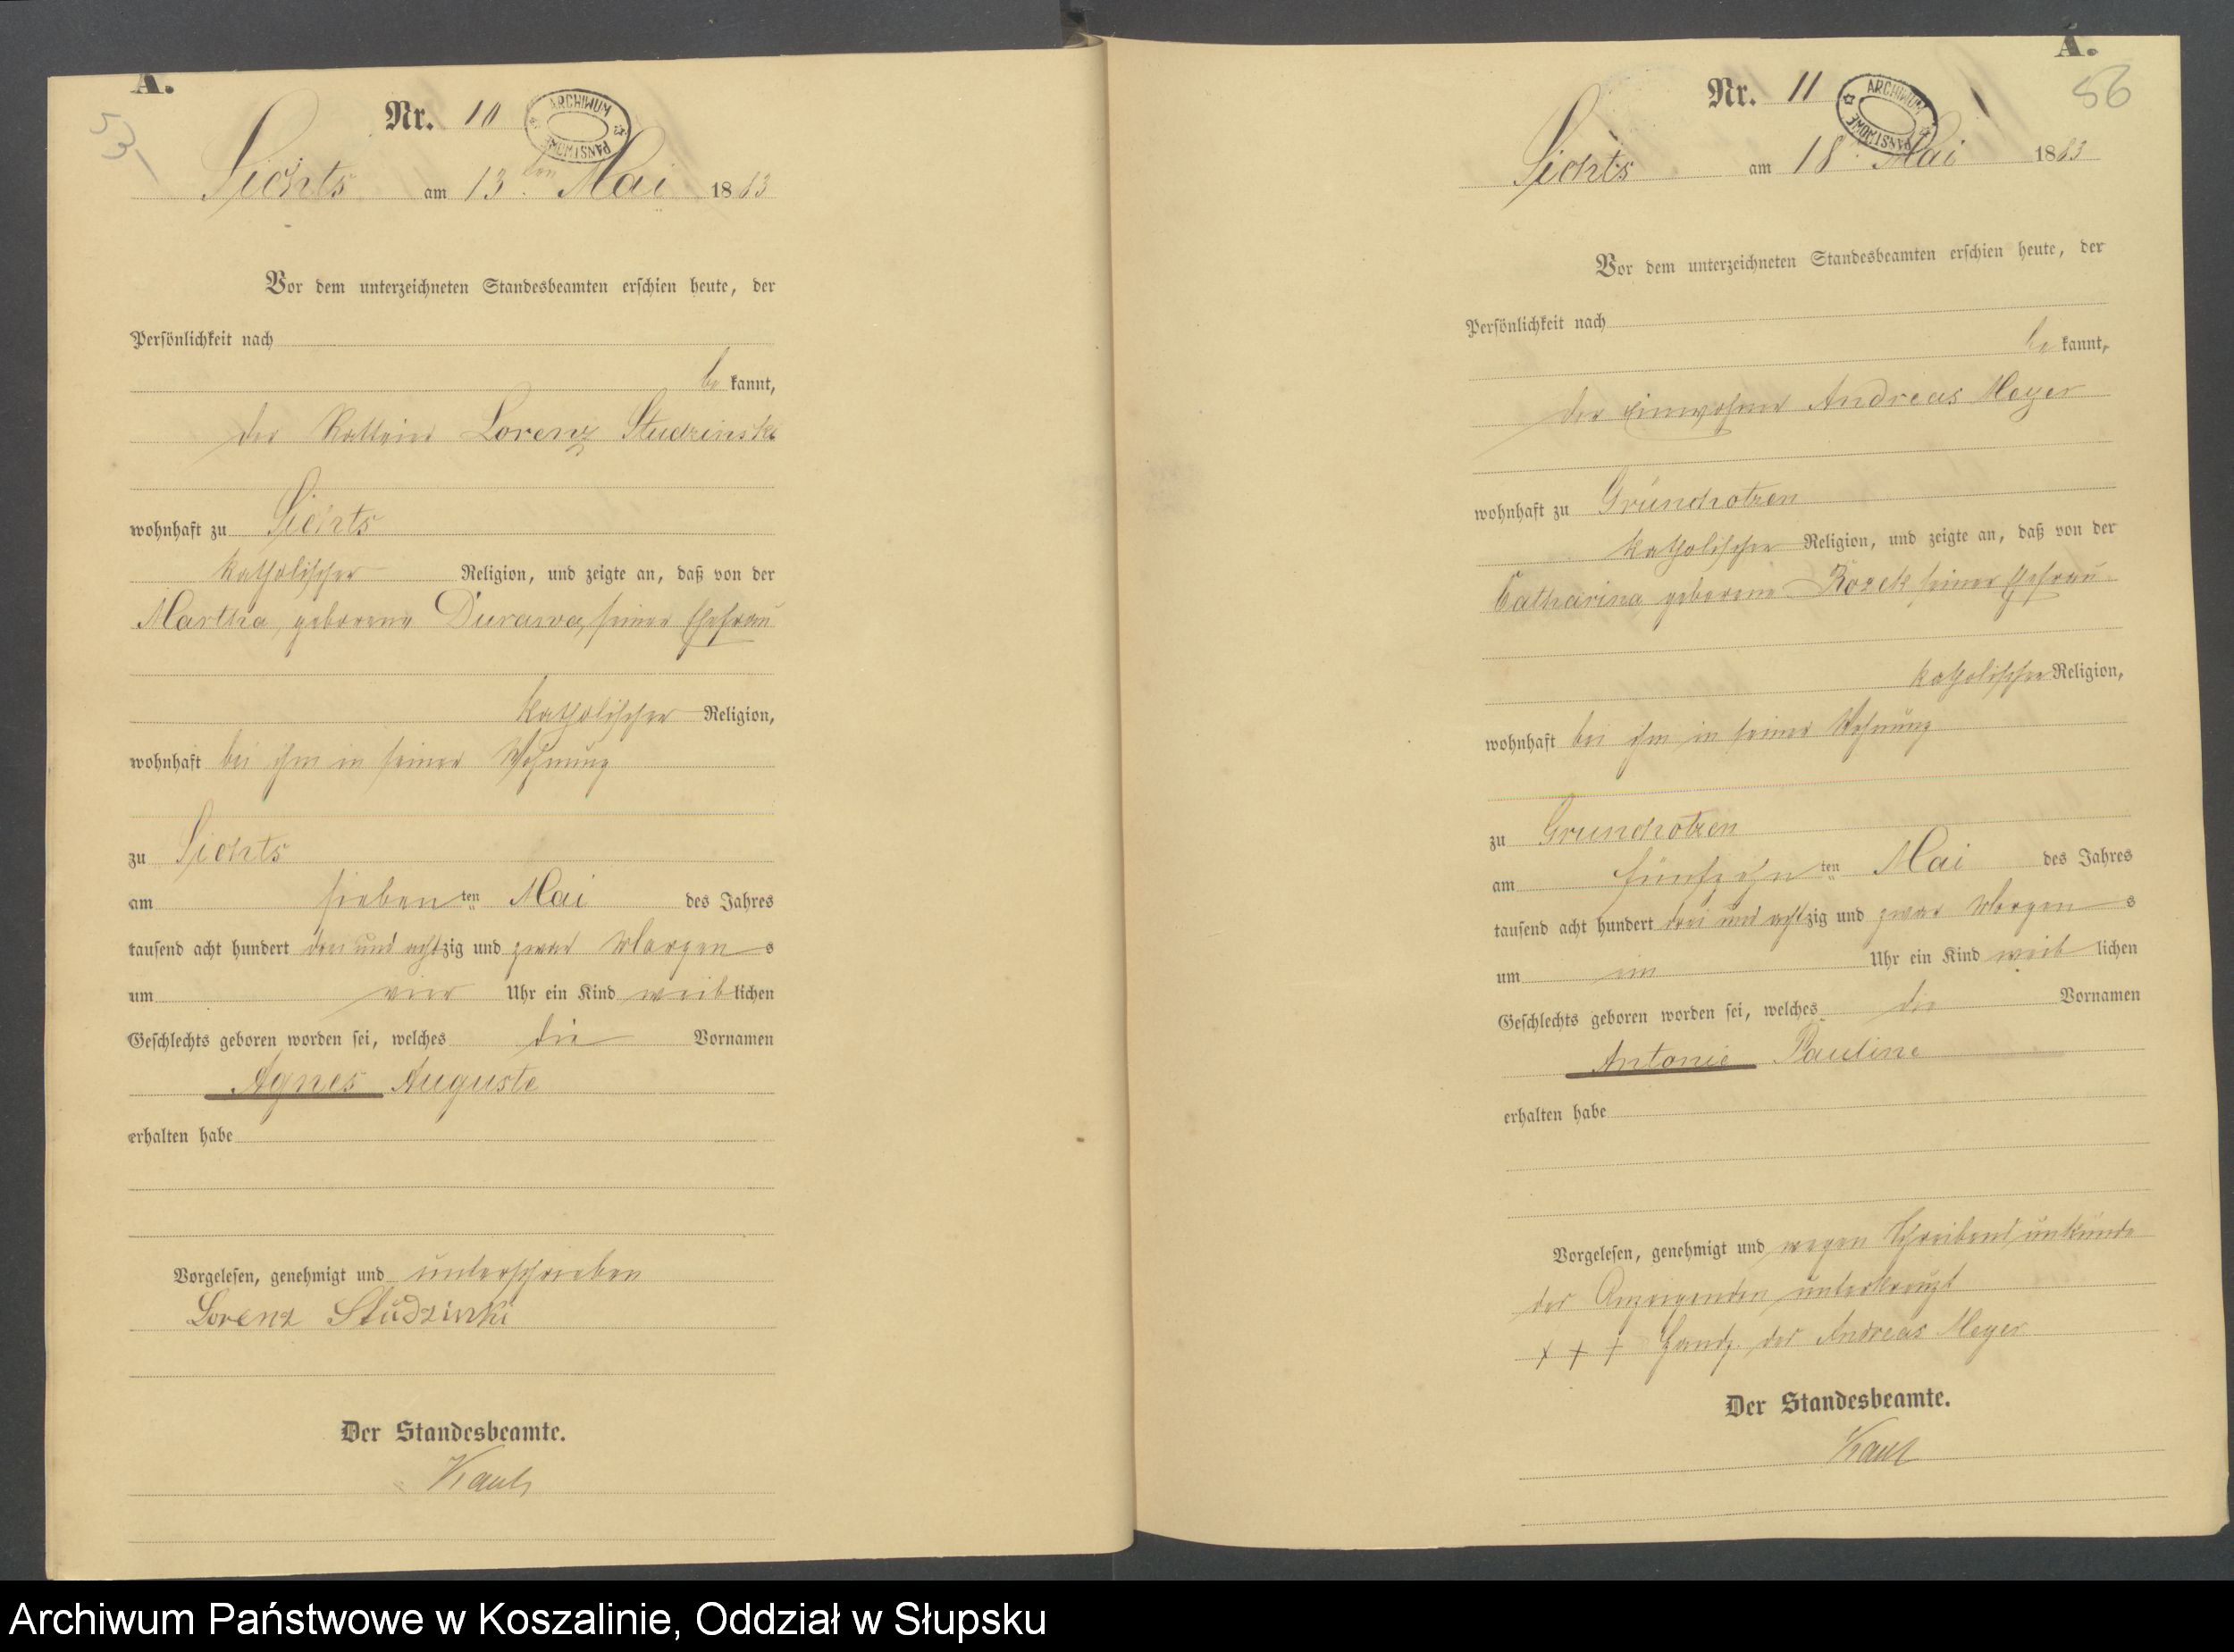 A.
53
Nr. 10
ARCHIWUM PAŃSTWOWE
Lichts am 13ten Mai 1883
Vor dem unterzeichneten Standesbeamten erschien heute, der
Persönlichkeit nach
be kannt,
der Lorenz Studzinski
wohnhaft zu Lichts
katholischer Religion, und zeigte an, daß von der
Martha, geborene Durawa, seiner Ehefrau
katholischer Religion,
wohnhaft bei ihm in seiner Wohnung
zu Lichts
am sieben ten Mai des Jahres
tausend acht hundert drei und achtzig und zwar Morgens
um vier Uhr ein Kind weiblichen
Geschlechts geboren worden sei, welches die Vornamen
Agnes Auguste
erhalten habe
Vorgelesen, genehmigt und unterschrieben
Lorenz Studzinski
Der Standesbeamte.
A.
56
Nr. 11
ARCHIWUM PAŃSTWOWE
Lichts am 18. Mai 1883
Vor dem unterzeichneten Standesbeamten erschien heute, der
Persönlichkeit nach
be kannt,
der Einwohner Andreas Meyer
wohnhaft zu Gründhotzen
katholischer Religion, und zeigte an, daß von der
Catharina geborene Kozek seiner Ehefrau
katholischer Religion,
wohnhaft bei ihm in seiner Wohnung
zu Grundhotzen
am fünfzehn ten Mai des Jahres
tausend acht hundert drei und achtzig und zwar Morgens
um ein Uhr ein Kind weib lichen
Geschlechts geboren worden sei, welches die Vornamen
Antonie Pauline
erhalten habe
Vorgelesen, genehmigt und wegen Schreibensunkunde
des Anzeigenden unterkreuzt
+ + + Handz. des Andreas Meyer
Der Standesbeamte.
Archiwum Państwowe w Koszalinie, Oddział w Słupsku